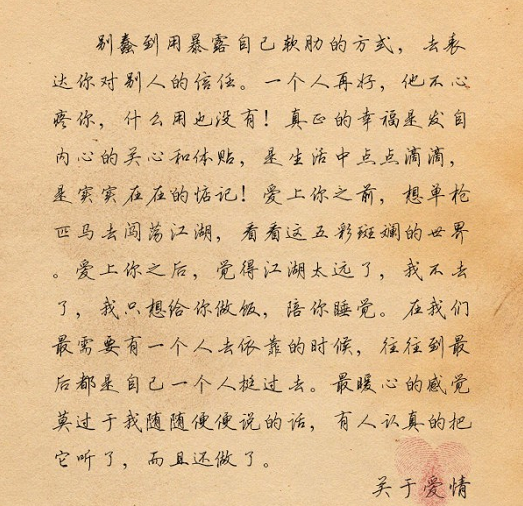 别蠢到用暴露自己软肋的方式，去表
达你对别人的信任。一个人再好，他不心
疼你，什么用也没有！真正的幸福是发自
内心的关心和体贴，是生活中点点滴滴，
是实实在在的惦记！爱上你之前，想单枪
匹马去闯荡江湖，看看这五彩斑斓的世界
。爱上你之后，觉得江湖太远了，我不去
了，我只想给你做饭，陪你睡觉。在我们
最需要有一个人去依靠的时候，往往到最
后都是自己一个人挺过去。最暖心的感觉
莫过于我随随便便说的话，有人认真的把
它听了，而且还做了。
关于爱情